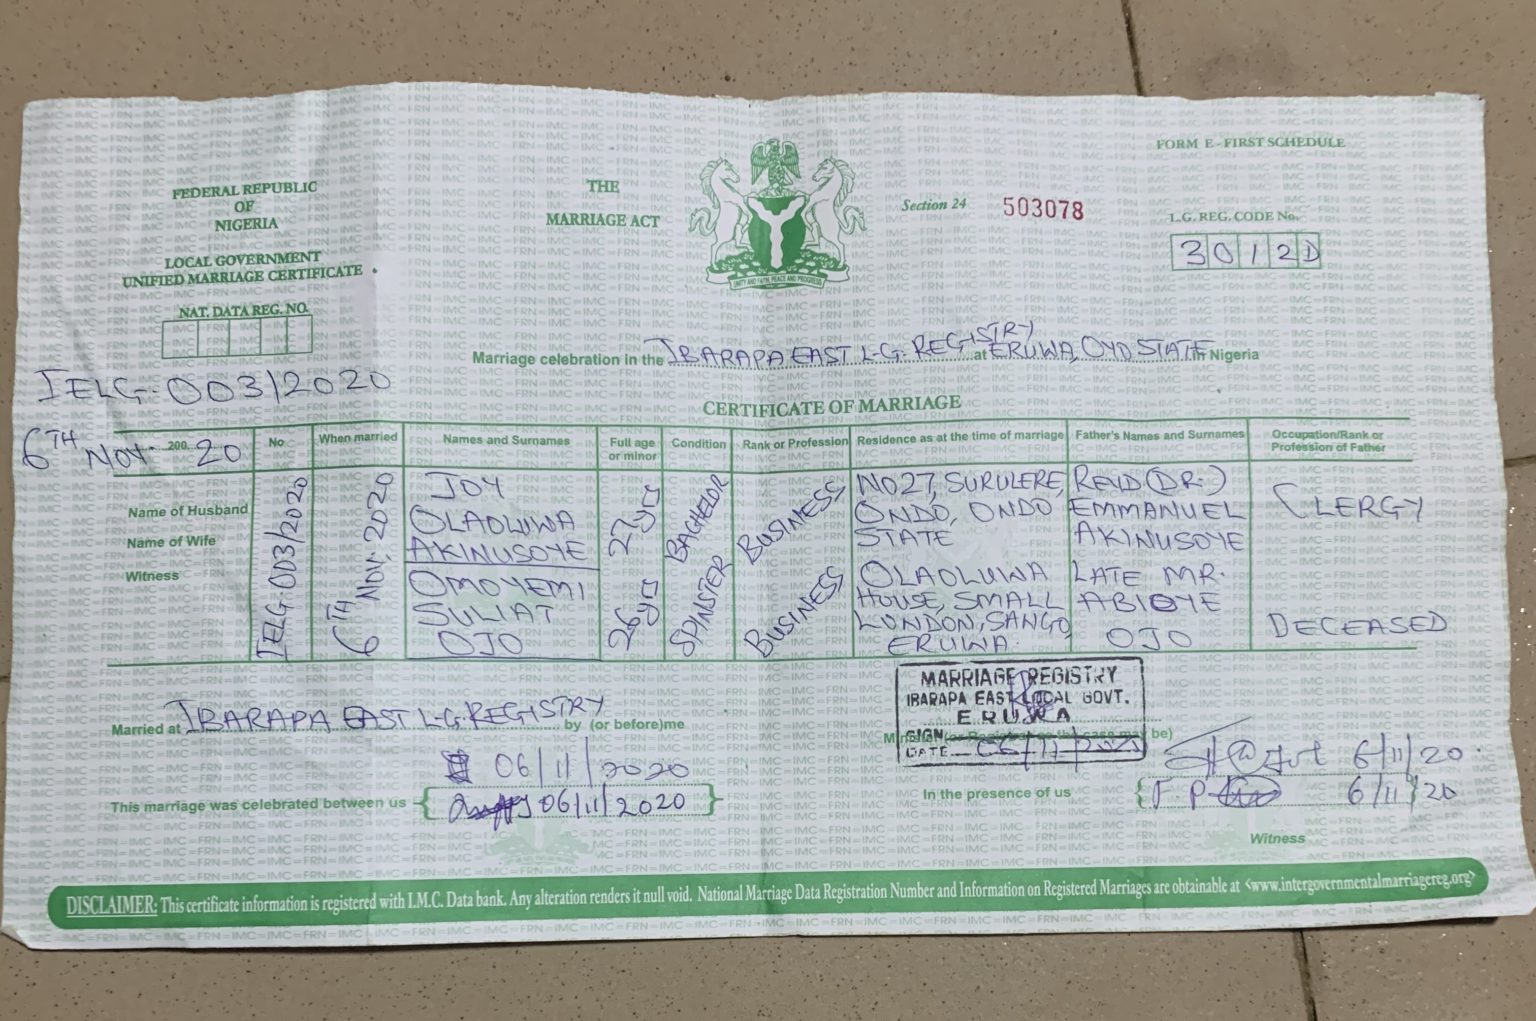 FORM E - FIRST SCHEDULE
FEDERAL REPUBLIC
OF
NIGERIA
LOCAL GOVERNMENT
UNIFIED MARRIAGE CERTIFICATE
NAT. DATA REG. NO.
THE
MARRIAGE ACT
UNITY AND FAITH, PEACE AND PROGRESS
Section 24 503078
L.G. REG. CODE No.
3012D
Marriage celebration in the IBARAPA EAST L.G. REGISTRY at ERUWA, OYO STATE in Nigeria
IELG.003/2020
CERTIFICATE OF MARRIAGE
6TH NOV. 200 20
No
When married
Names and Surnames
Full age
or minor
Condition
Rank or Profession
Residence as at the time of marriage
Father's Names and Surnames
Occupation/Rank or
Profession of Father
Name of Husband
Name of Wife
Witness
IELG.003/2020
6TH NOV, 2020
JOY
OLAOLUWA
AKINUSOYE
27yrs
BACHELOR
BUSINESS
NO27, SURULERE,
ONDO, ONDO
STATE
REVD (DR.)
EMMANUEL
AKINUSOYE
CLERGY
OMOYEMI
SULIAT
OJO
26yrs
SPINSTER
BUSINESS
OLAOLUWA
HOUSE, SMALL
LONDON, SANGO,
ERUWA.
LATE MR.
ABIOYE
OJO
DECEASED
Married at IBARAPA EAST L.G. REGISTRY by (or before)me
MARRIAGE REGISTRY
IBARAPA EAST LOCAL GOVT.
ERUWA
SIGN
DATE 06/11/2020
06/11/2020
This marriage was celebrated between us 06/11/2020
In the presence of us
6/11/20
6/11/20
Witness
DISCLAIMER: This certificate information is registered with I.M.C. Data bank. Any alteration renders it null void. National Marriage Data Registration Number and Information on Registered Marriages are obtainable at <www.intergovernmentalmarriagereg.org>